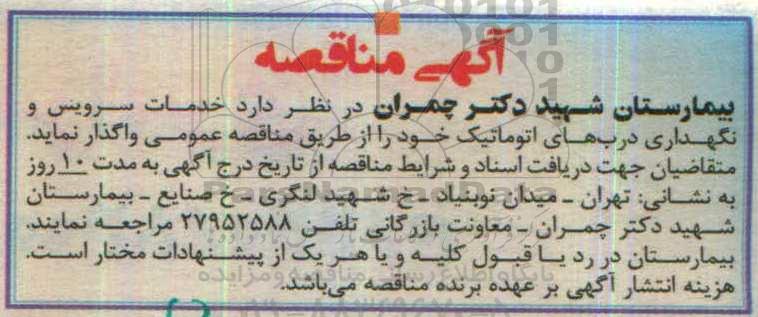 آگهی مناقصه
بیمارستان شهید دکتر چمران در نظر دارد خدمات سرویس و
نگهداری درب‌های اتوماتیک خود را از طریق مناقصه عمومی واگذار نماید.
متقاضیان جهت دریافت اسناد و شرایط مناقصه از تاریخ درج آگهی به مدت ۱۰ روز
به نشانی: تهران ـ میدان نوبنیاد ـ خ شهید لنگری ـ خ صنایع ـ بیمارستان
شهید دکتر چمران ـ معاونت بازرگانی تلفن ۲۷۹۵۲۵۸۸ مراجعه نمایند.
بیمارستان در رد یا قبول کلیه و یا هر یک از پیشنهادات مختار است.
هزینه انتشار آگهی بر عهده برنده مناقصه می‌باشد.